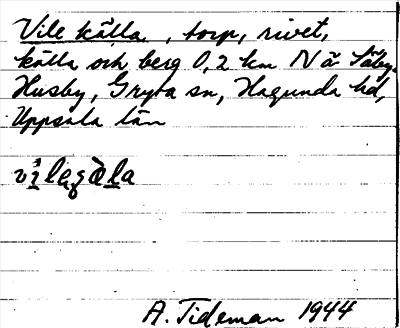 Vile källa, torp, rivet,
källa och berg 0,2 km N ä Säby,
Husby, Gryta sn, Hagunda hd,
Uppsala län
A. Tideman 1944